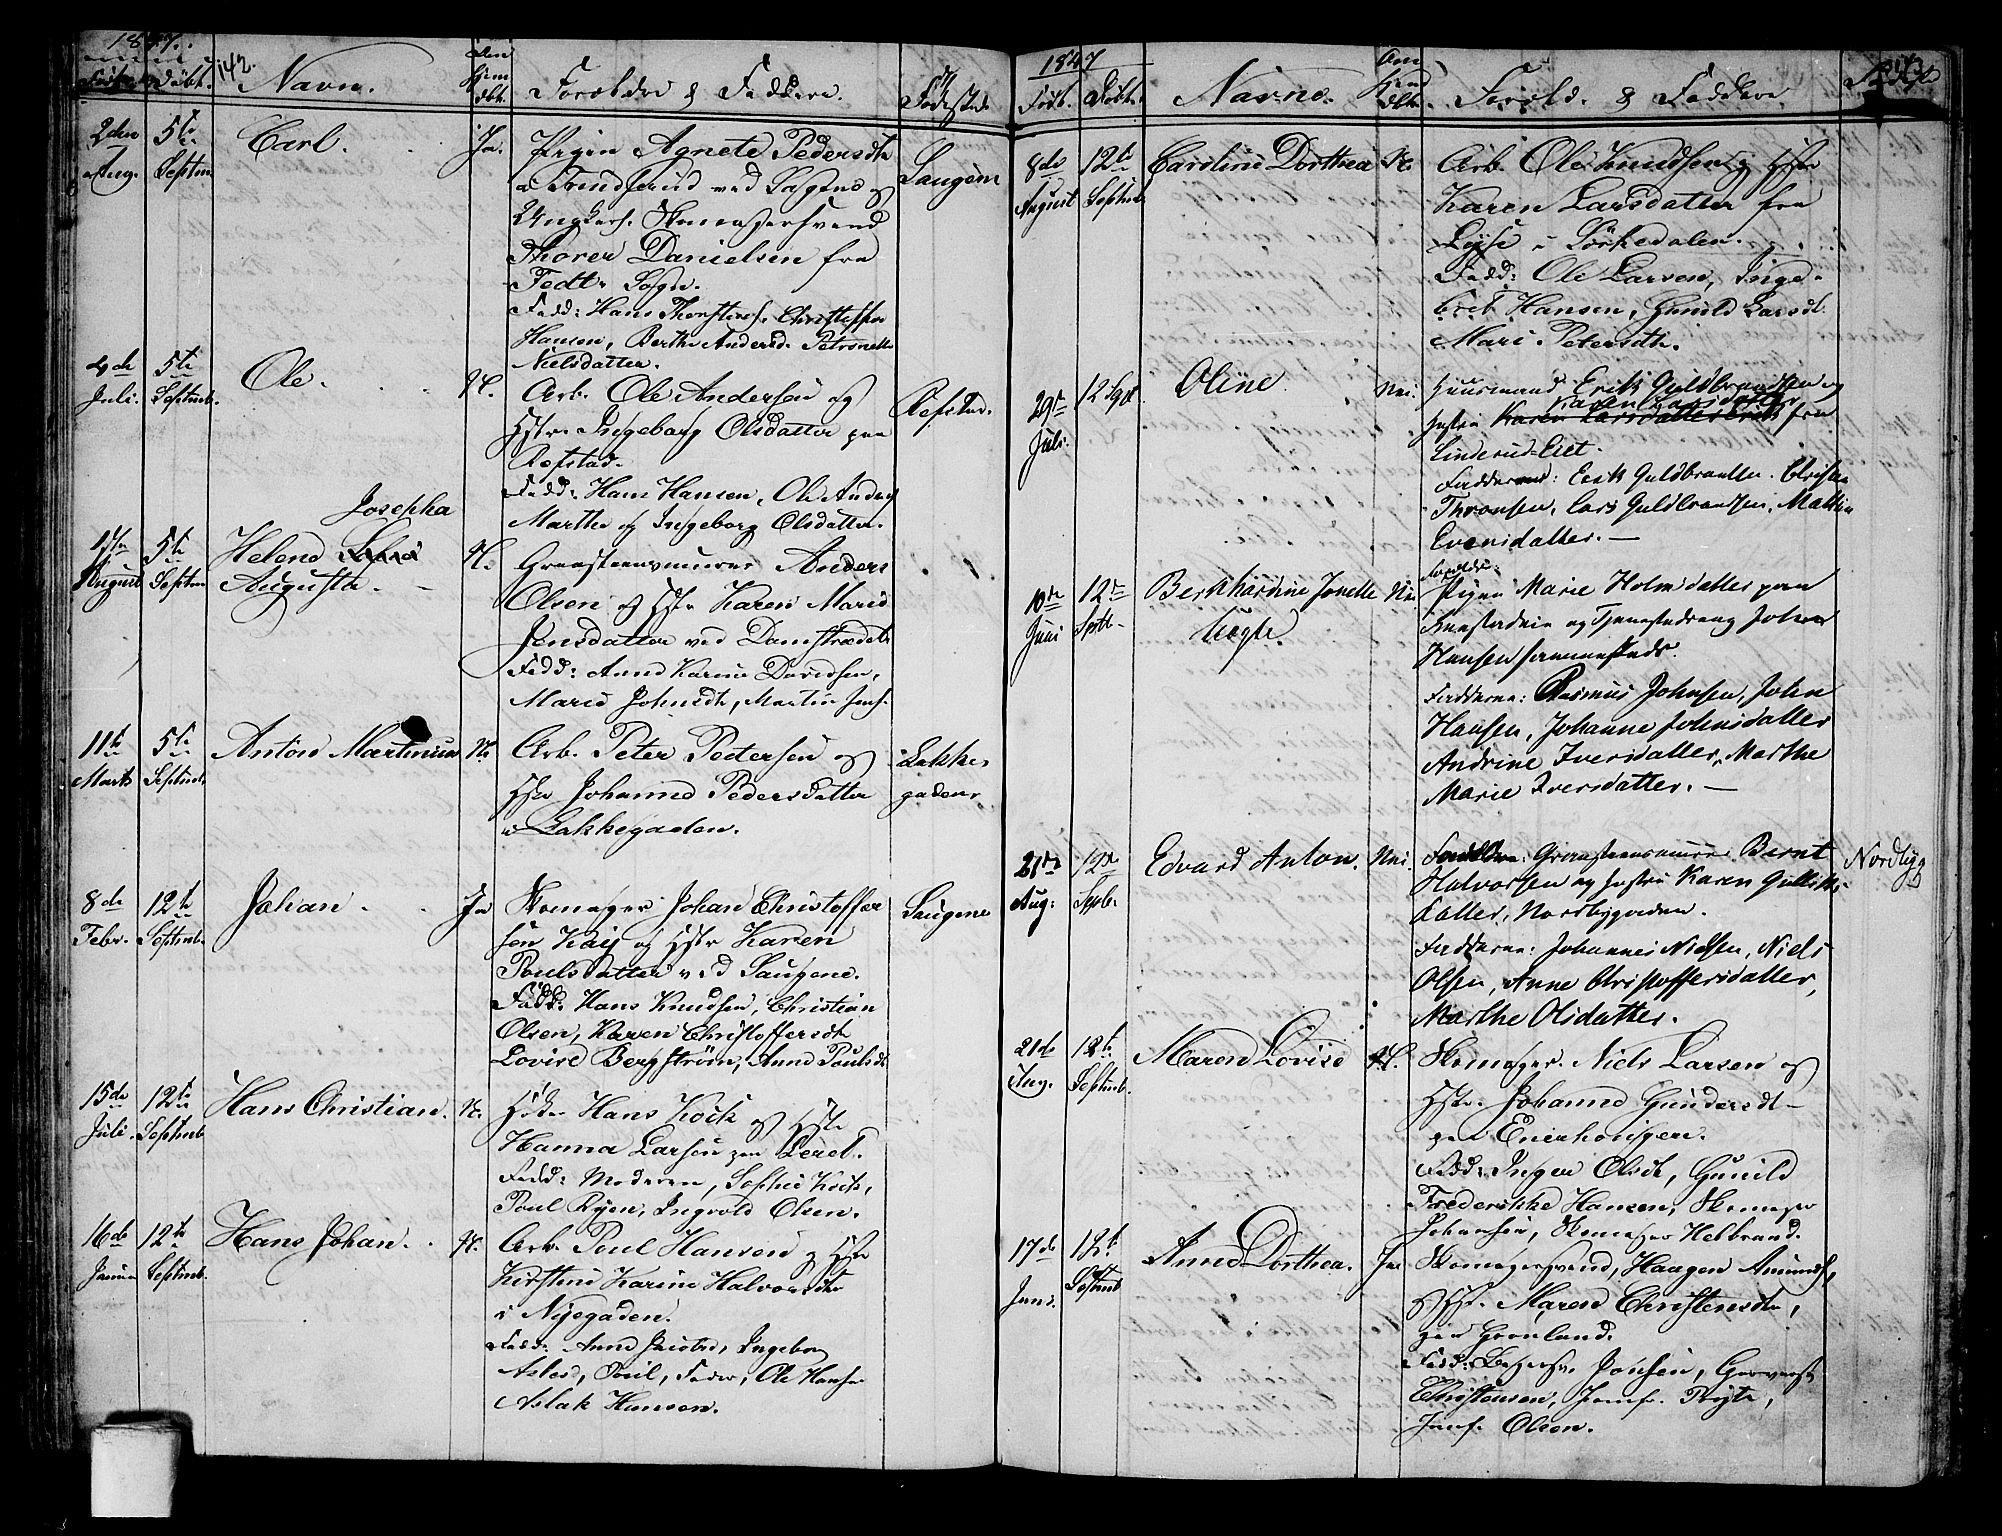 1847.
142.
Født. Døbt. Navn. Hjem dbt. Forældre & Faddere. Fødested
2den Aug. 5te Septbr. Carl. Ja. Pigen Agnete Pedersdtr
ved Sagene og
Ungkarl Skomagersvend
Thorer Danielsen fra
Sogn.
Fadd: Hans Thorstens. Christoffer
Hansen, Berthe Andersd. Petronelle
Nielsdatter.
Saugene
4de Juli. 5te Septemb. Ole. N. Arb. Ole Andersen og
Hstr. Ingeborg Olsdatter paa
Refstad.
Fadd: Hans Hansen, Ole Anders
Marthe og Ingeborg Olsdatter.
Refstad.
August 5te Septemb. Helene Josepha
Augusta N. Graasteensmurer Anders
Olsen og Hstr Karen Marie
Jensdatter ved Damstrædet
Fadd: Anne Karine Davidsen,
Marie Johnsdt, Martin Jens.
11te Marts 5te Septemb. Anton Martinius N. Arb. Peter Pedersen og
Hstr Johanne Pedersdatter
i Lakkegaden.
Lakkegaden
8de Febr. 12te Septemb. Johan Ja Skomager Johan Christoffer
sen Kaij og Hstr Karen
Poulsdatter ved Saugene.
Fadd: Hans Knudsen, Christian
Olsen, Karen Christoffersdt
Lovise Bergstrøm, Anne Poulsdt
Saugene
15de Juli. 12te Septemb Hans Christian. N. Hans Kock og Hstr
Hanna Larsen paa
Fadd: Moderen, Sophie Kock,
Poul Ryen, Ingvold Olsen.
16de Januar 12te Septemb. Hans Johan. N. Arb. Poul Hansen og Hstr
Kirstine Karine Halvorsdtr
i Nygaden.
Fadd: Anne Jacobsd, Ingeborg
Aslesd, Poul, Ole Hansen
Aslak Hansen.
1847
Født. Døbt. Navne. Om Hjem dbt. Foræld. & Faddere.
8de August 12te Septemb. Caroline Dorthea N. Arb. Ole Knudsen og Hstr
Karen Larsdatter fra
Lysø i Sørkedalen.
Fadd: Ole Larsen, Inge-
bret Hansen, Gunild Larsdt.
Mari Petersdtr.
29de Juli. 12 Sept Oline. Nei. Huusmand Erik Guldbrandsen og
Karen Larsdatter
Hustru fra
Linderud-Eiet.
Fadderne: Erik Guldbrandsen. Christian
Thronsen, Lars Guldbrandsen, Mathia
Evensdatter.—
10de Juni 12te Septb. Bernhardine Jonette Nei Forældre:
Pigen Marie Holmsdatter paa
og Tjenestedreng Johan
Hansen sammesteds.
Fadderne: Rasmus Johnsen, John
Hansen, Johanne Johnsdatter
Andrine Iversdatter, Marthe
Marie Iversdatter.—
21de Aug: 12te Septb. Edvard Anton. Nei. Forældre: Graasteensmurer Bernt
Halvorsen og Hustru Karen Gulliks-
datter, Nordbygaden.
Fadderne: Johannes Nielsen, Niels
Olsen, Anne Christoffersdatter,
Marthe Olsdatter.
Nordbyg
21de Aug. 12te Septemb. Maren Lovise N. Skomager Niels Larsen og
Hstr. Johanne Gundersdt
paa Enerhougen.
Fadd: Inger Olsdt, Gunild
Frederikke Hansen, Skomager
Johansen, Skomager Helbrand.
17de Juni. 12te Septemb Anne Dorthea. Ja Skomagersvend, Haagen Amunds,
og Hst. Maren Christensdtr,
paa Grønland.
Fadd: Jonsen,
Christensen, Jomf. Olsen.